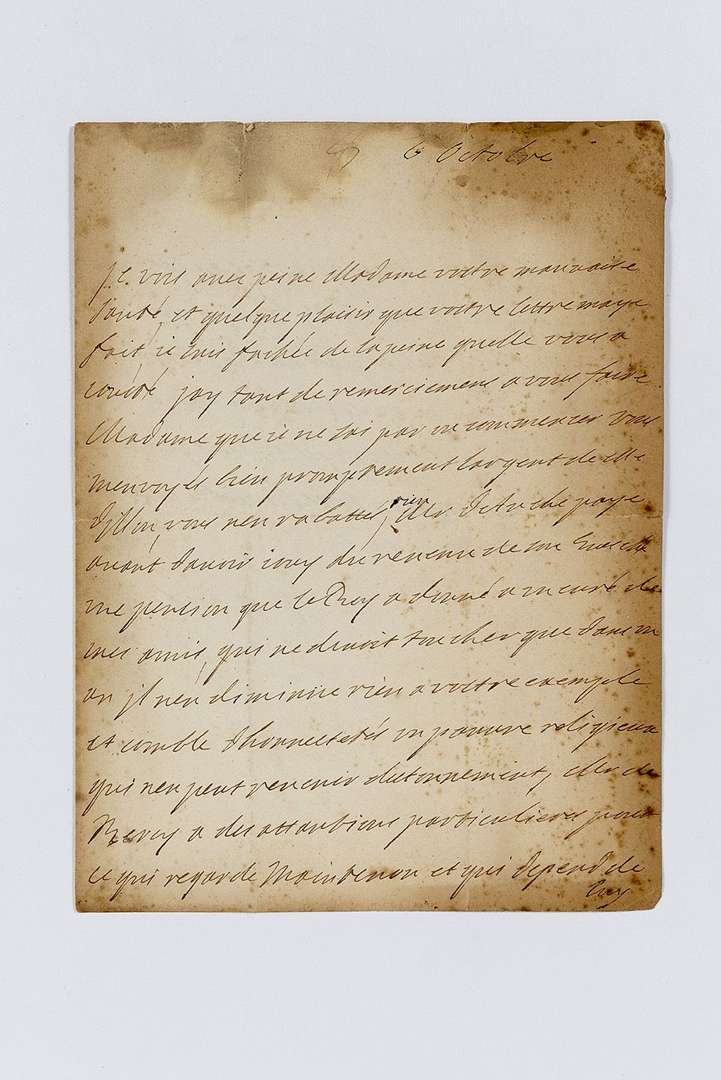 6 Octobre
je vois avec peine Madame vostre mauvaise
santé, et quelque plaisir que vostre lettre maye
fait ie suis fachée de la peine quelle vous a
cousté jay tant de remerciemens a vous faire
Madame que ie ne sai par ou commencer vous
menvoyés bien promptement largent de
Dillon, vous nen rabattés rien, Mr paye
avant davoir iouy du revenu de son
une pension que le Roy a donné a un curé de
mes amis, qui ne devoit toucher que dans un
an jl nen diminue rien a vostre exemple
et comble dhonnestetés un pauvre religieux
qui nen peut revenir destonnement, Mr de
Bercy a des attantions particulieres pour
ce qui regarde Maintenon et qui depend de
luy